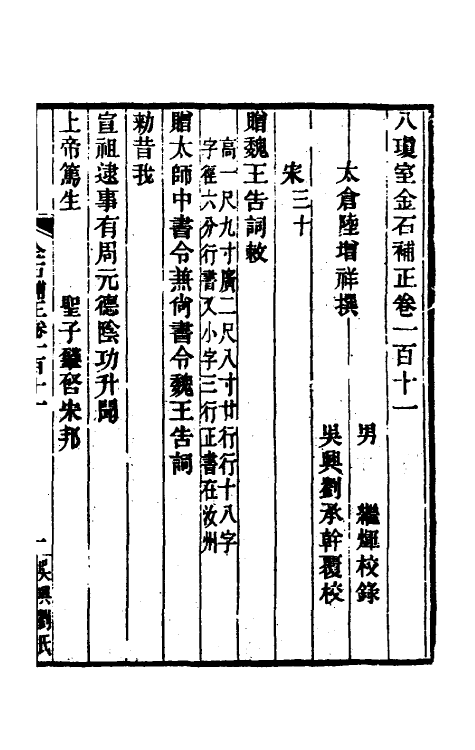 八瓊室金石補正卷一百十一
太倉陸增祥撰
男　繼煇校錄
吳興劉承幹覆校
宋三十
贈魏王告詞敕
高一尺九寸廣二尺八寸廿行行十八字
字徑六分行書又小字三行正書在汝州
贈太師中書令兼尙書令魏王告詞
勅昔我
宣祖逮事有周元德陰功升聞
上帝篤生　聖子肇啓宋邦
金石補正卷一百十一
一
吳興劉氏